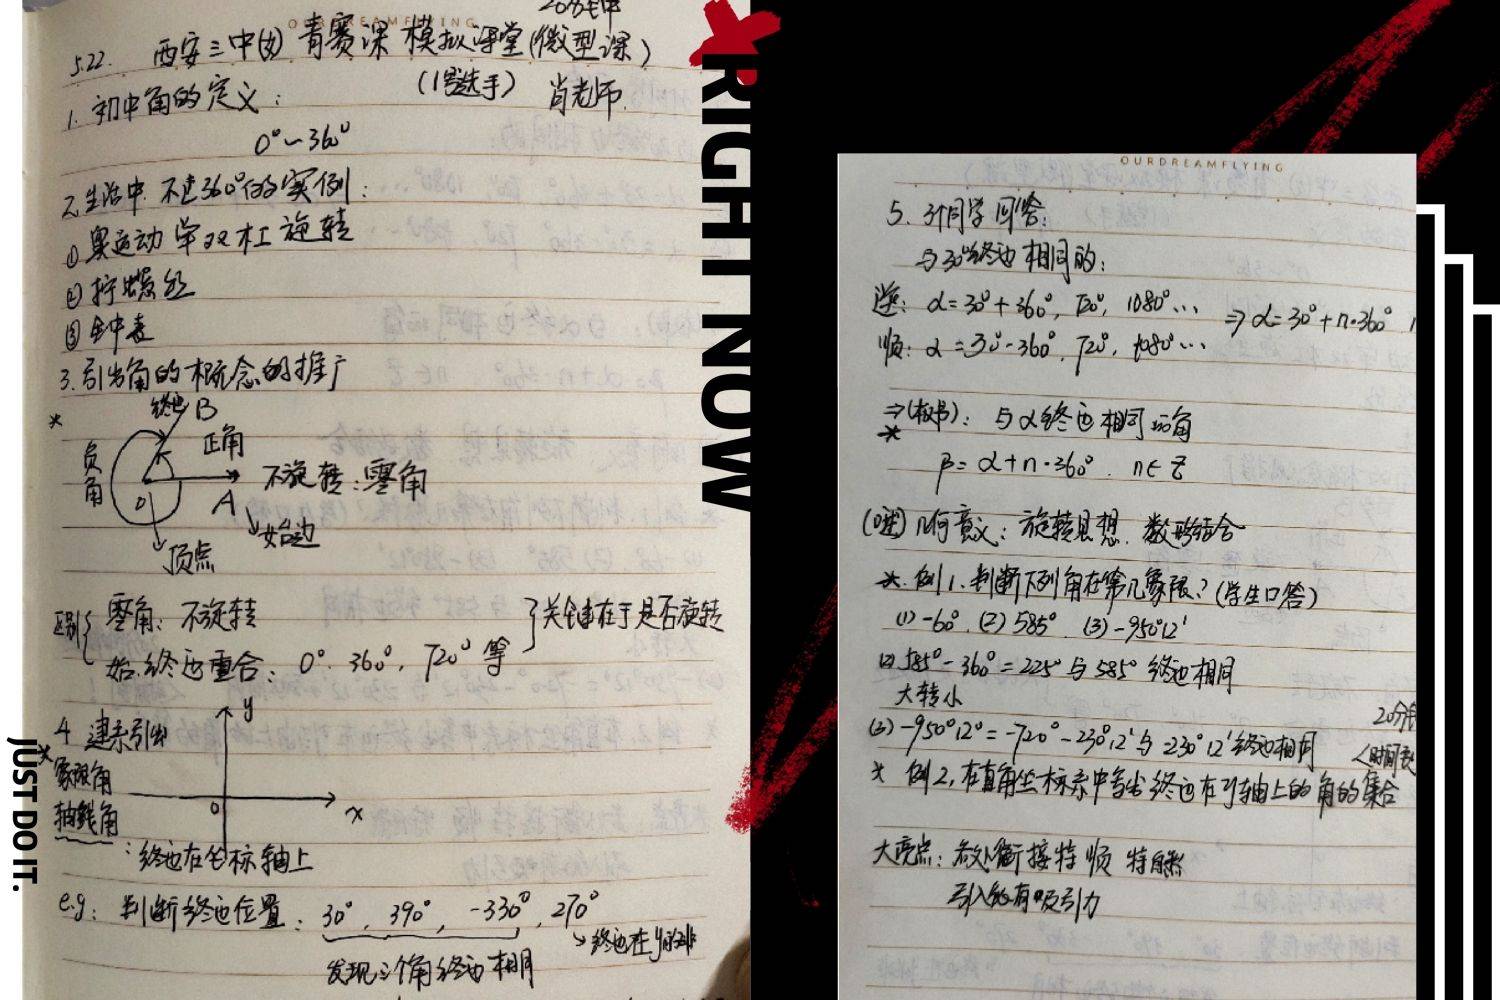 OURDREAMFLYING
20分钟
5.22. 西安三中(女) 青赛课 模拟课堂(微型课)
(1号选手) 肖老师.
1. 初中角的定义:
0°~360°
2.生活中 不足360°的实例:
① 奥运动 单双杠 旋转
② 拧螺丝
③ 钟表
3.引出角的概念的推广
* 终边 B
正角
负角
不旋转:零角
O A
始边
顶点
区别 零角: 不旋转
始.终边重合: 0°. 360°, 720°等
关键在于是否旋转
4. 建系引出
* 象限角
轴线角
y
O x
:终边在坐标轴上
e.g: 判断终边位置: 30°, 390°, -330°, 270°
终边在y的非
发现三个角终边相同
JUST DO IT.
RIGHT NOW
OURDREAMFLYING
5. 3个同学回答:
与30°终边相同的:
逆: α=30°+360°, 720°, 1080°… ⇒ α=30°+n·360°
顺: α=30°-360°, 720°, 1080°…
⇒(板书): 与α终边相同的角
*
β=α+n·360°. n∈Z
几何意义: 旋转思想. 数形结合
*. 例1.判断下列角在第几象限?(学生口答)
(1)-60°. (2) 585°. (3)-950°12'
(2) 585°-360°=225°与585°终边相同
大转小
20分钟
(3) -950°12°=-720°-230°12'与-230°12'终边相同
* 例2.在直角坐标系中写出终边在y轴上的角的集合
大亮点: 衔接特顺 特自然
引入的有吸引力